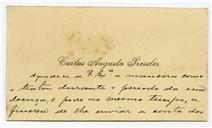 Carlos Augusto Pressler
Agradece a V. Exª a maneira como
o tratou durante o periodo da sua
doença, e pede ao mesmo tempo, a
fineza de lhe enviar a conta dos